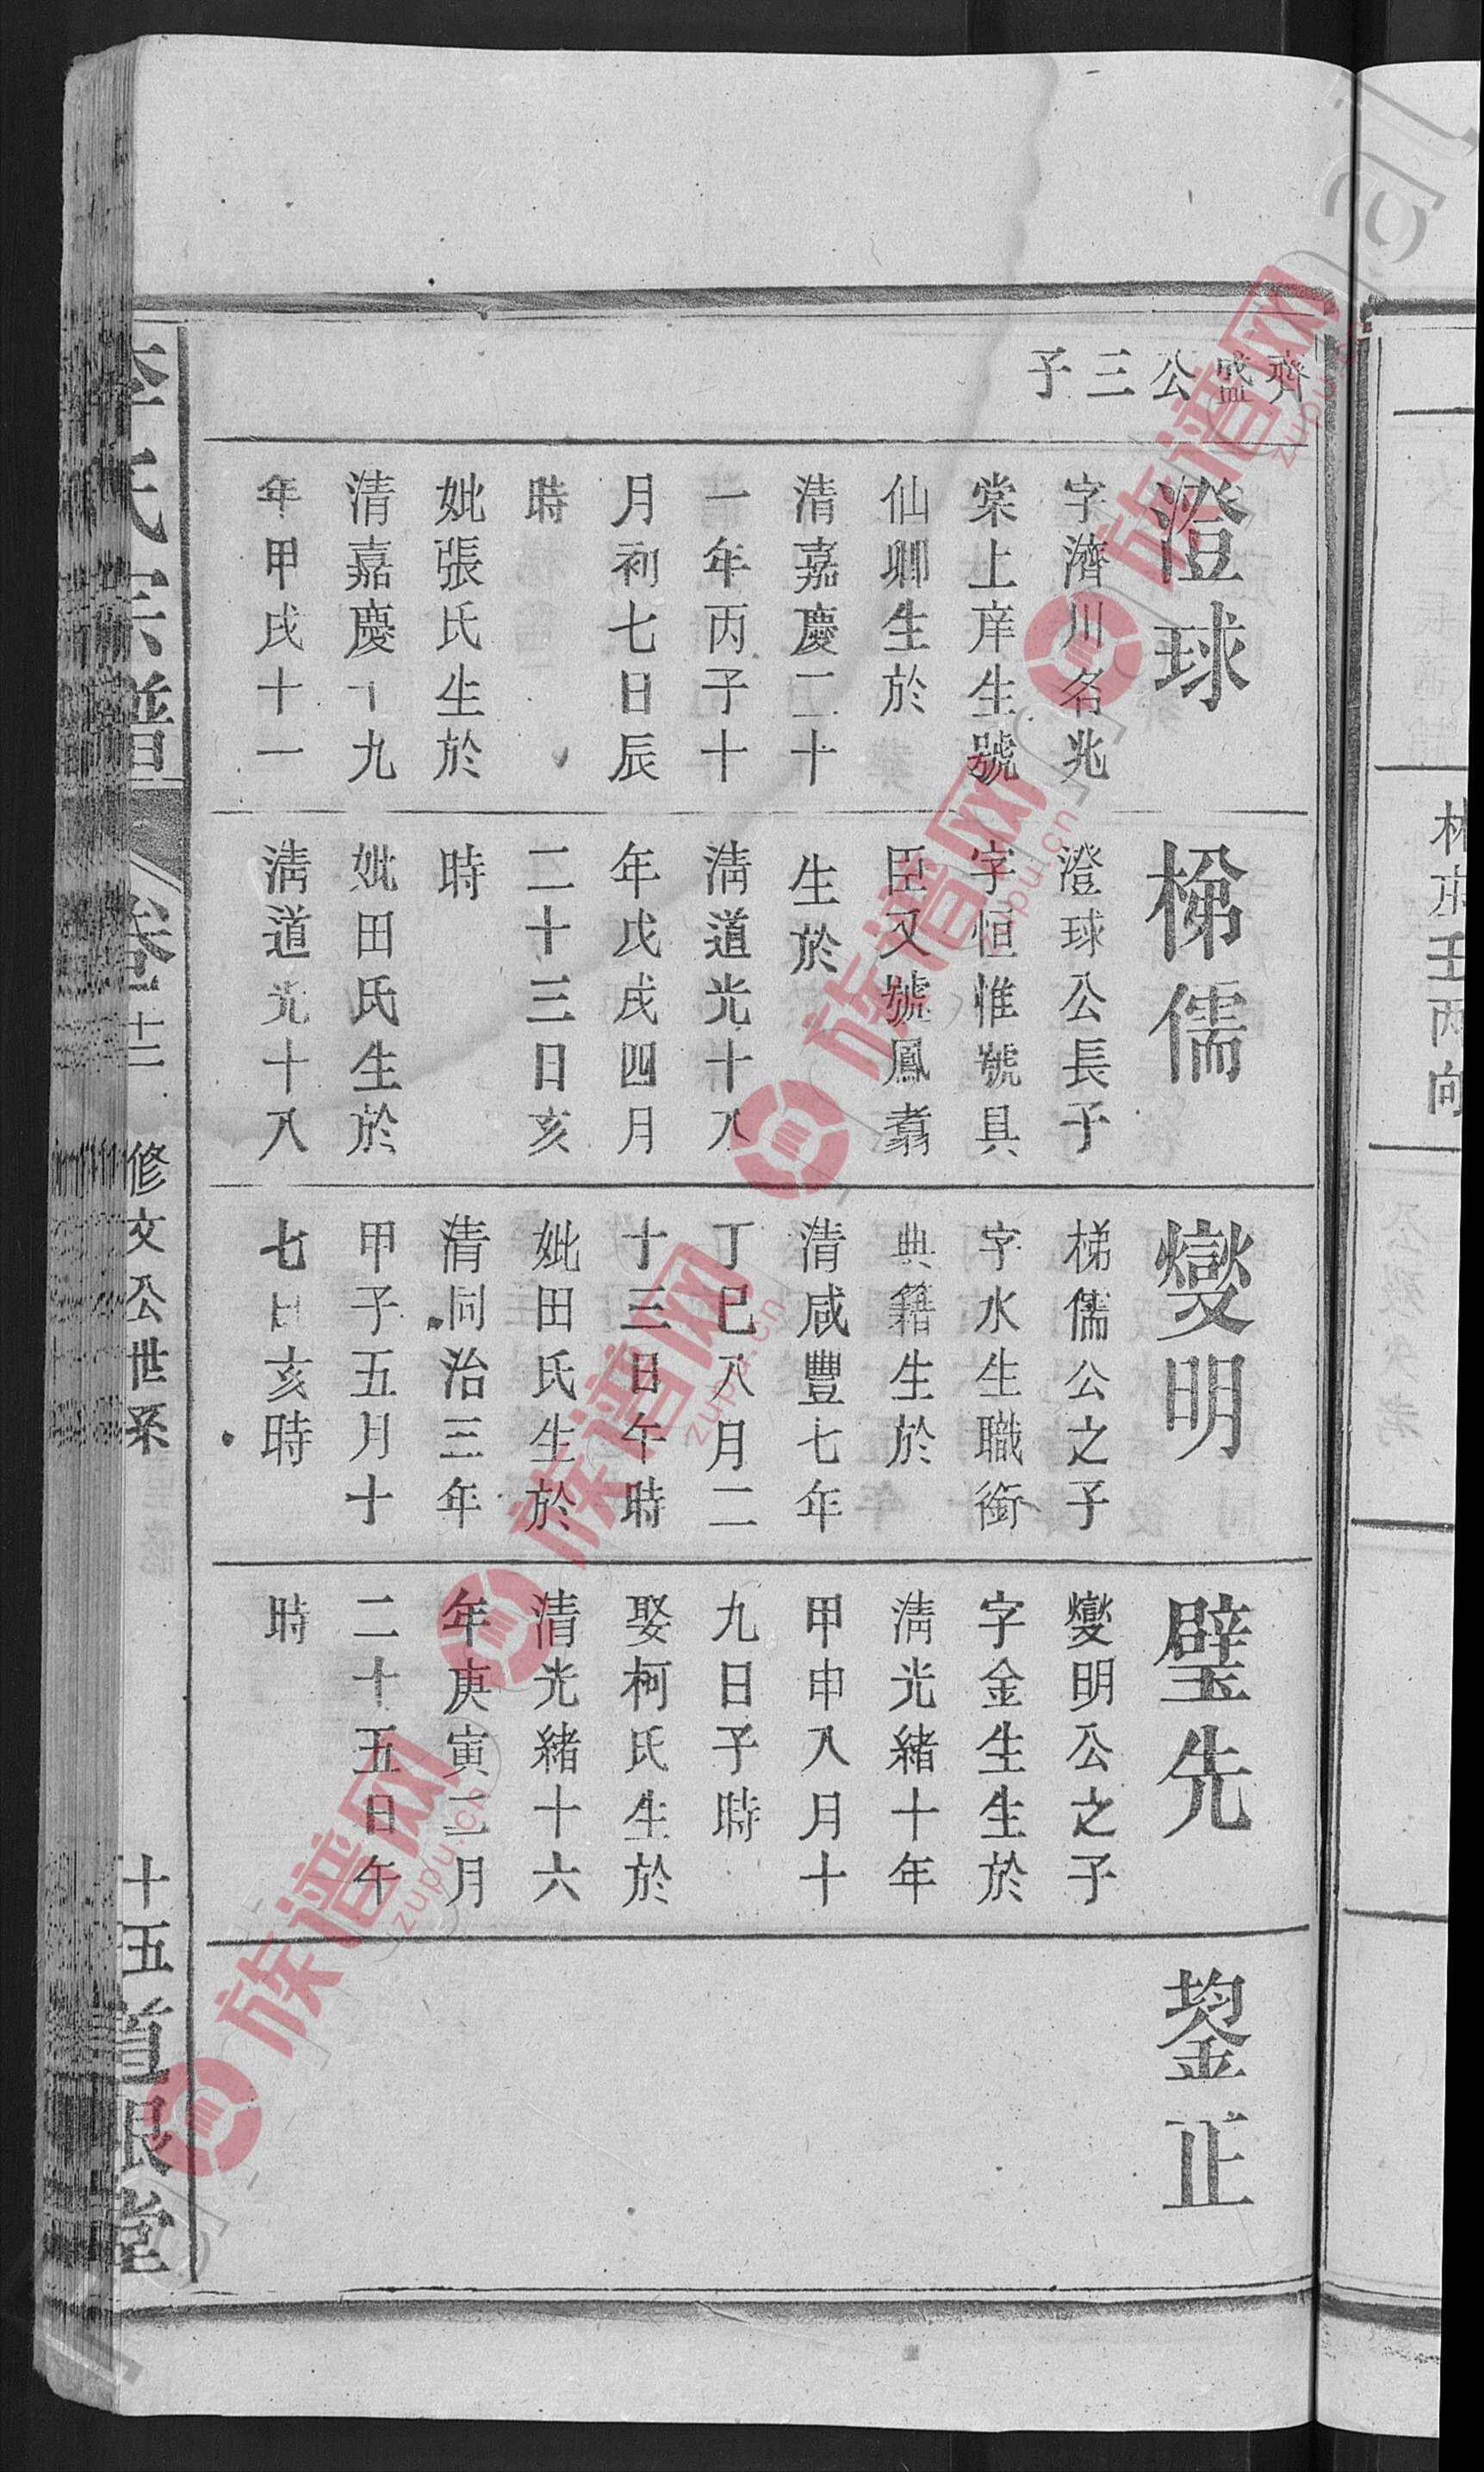 齊盛公三子
澄球
字濟川名兆
棠上庠生號
仙卿生於
清嘉慶二十
一年丙子十
月初七日辰
時
妣張氏生於
清嘉慶十九
年甲戌十一
梯儒
澄球公長子
字恒惟號具
臣又號鳳翥
生於
清道光十八
年戊戌四月
二十三日亥
時
妣田氏生於
清道光十八
燮明
梯儒公之子
字水生職銜
典籍生於
清咸豐七年
丁巳八月二
十三日午時
妣田氏生於
清同治三年
甲子五月十
七日亥時
璧先
燮明公之子
字金生生於
清光緒十年
甲申八月十
九日子時
娶柯氏生於
清光緒十六
年庚寅二月
二十五日午
時
鋆正
李氏宗譜
卷十二
修文公世系
十五
道根堂
族谱网
zupu.cn
族谱网
zupu.cn
族谱网
zupu.cn
族谱网
zupu.cn